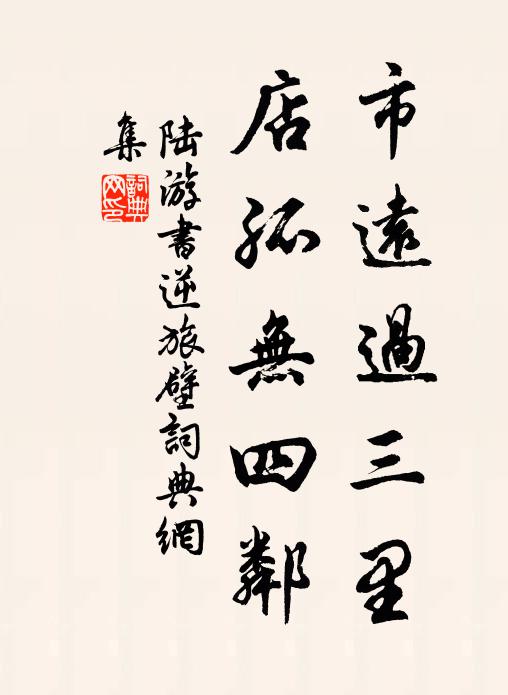 市遠過三里
店孤無四鄰
陸游書逆旅壁詞典網
集
詞典
網印